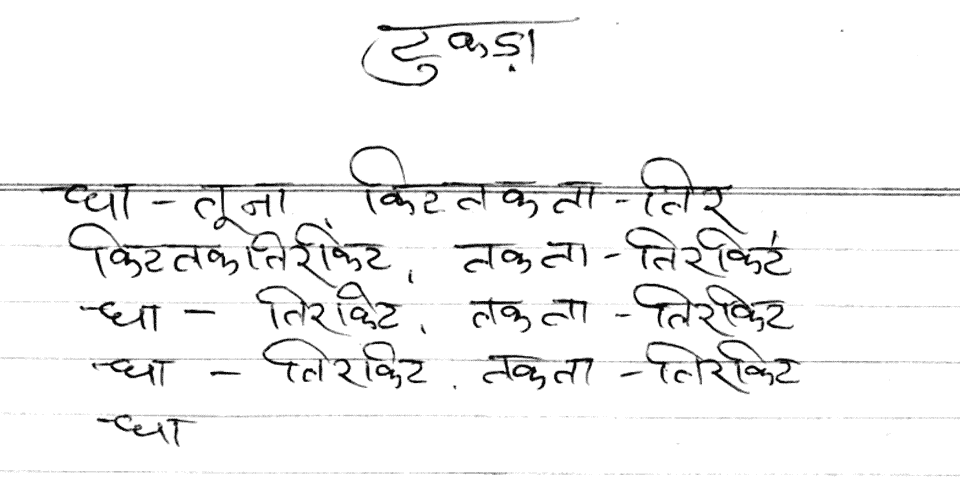 टुकड़ा
धा - तूना, किटतकता-तिर
किटतकतिरकिट, तकता - तिरकिट
धा - तिरकिट, तकता - तिरकिट
धा - तिरकिट, तकता - तिरकिट
धा